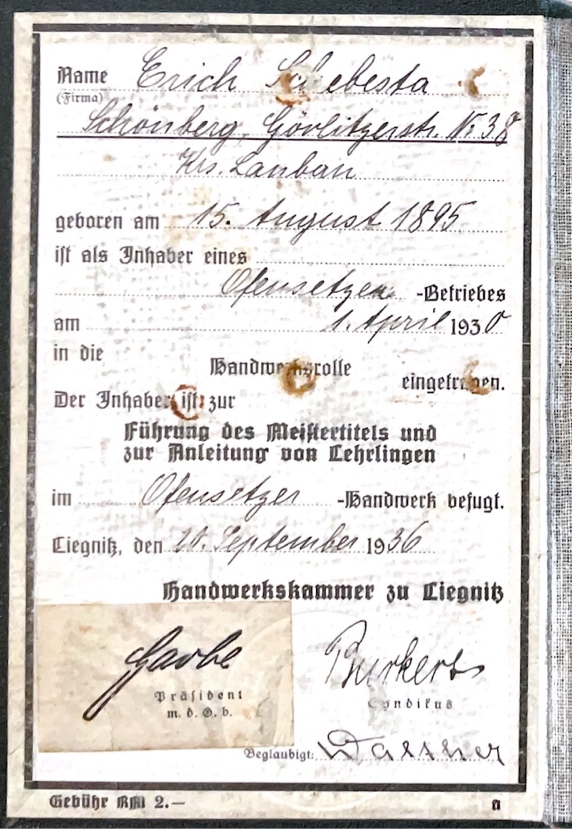 Name Erich Schebesta
(Firma)
Schönberg, Görlitzerstr. Nr. 38
Krs. Lauban
geboren am 15. August 1895
ist als Inhaber eines
Ofensetzer -Betriebes
am 1. April 1930
in die
Handwerksrolle
eingetragen.
Der Inhaber ist zur
Führung des Meistertitels und
zur Anleitung von Lehrlingen
im Ofensetzer -Handwerk befugt.
Liegnitz, den September 1936
Handwerkskammer zu Liegnitz
Garbe
Präsident
m. d. G. b.
Burkert
Syndikus
Beglaubigt: Walther
Gebühr RM 2.—
a